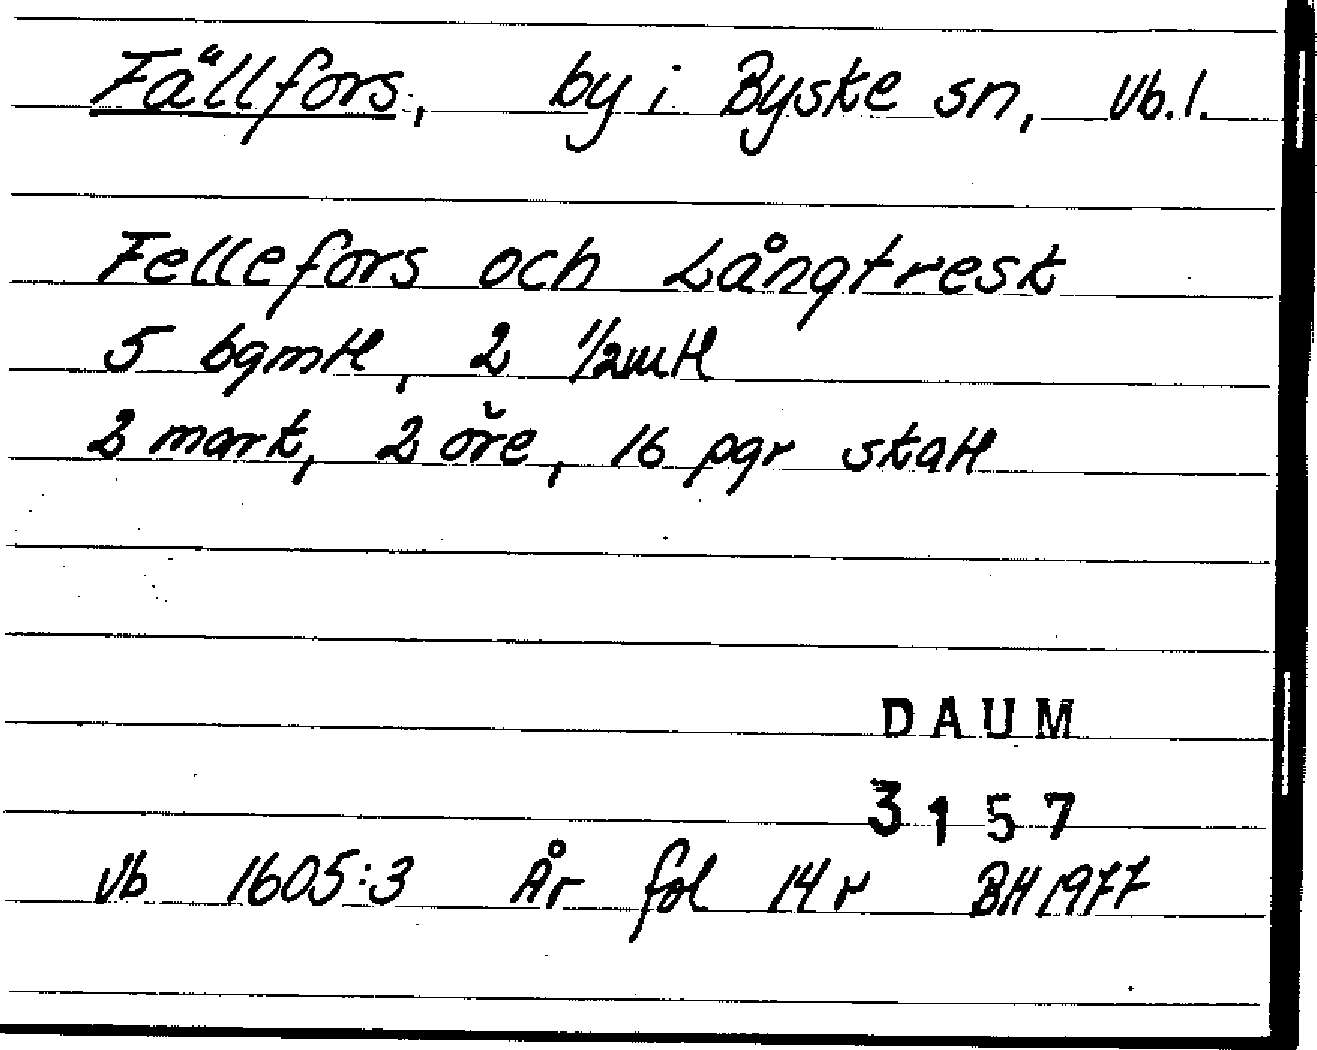 Fällfors, by i Byske sn, Vb.l.
Fellefors och Långtresk
5 bgmtl, 2 1/2mtl
2 mark, 2 öre, 16 pgr skatt
DAUM
3157
Vb 1605:3 År fol 14r BH 1977